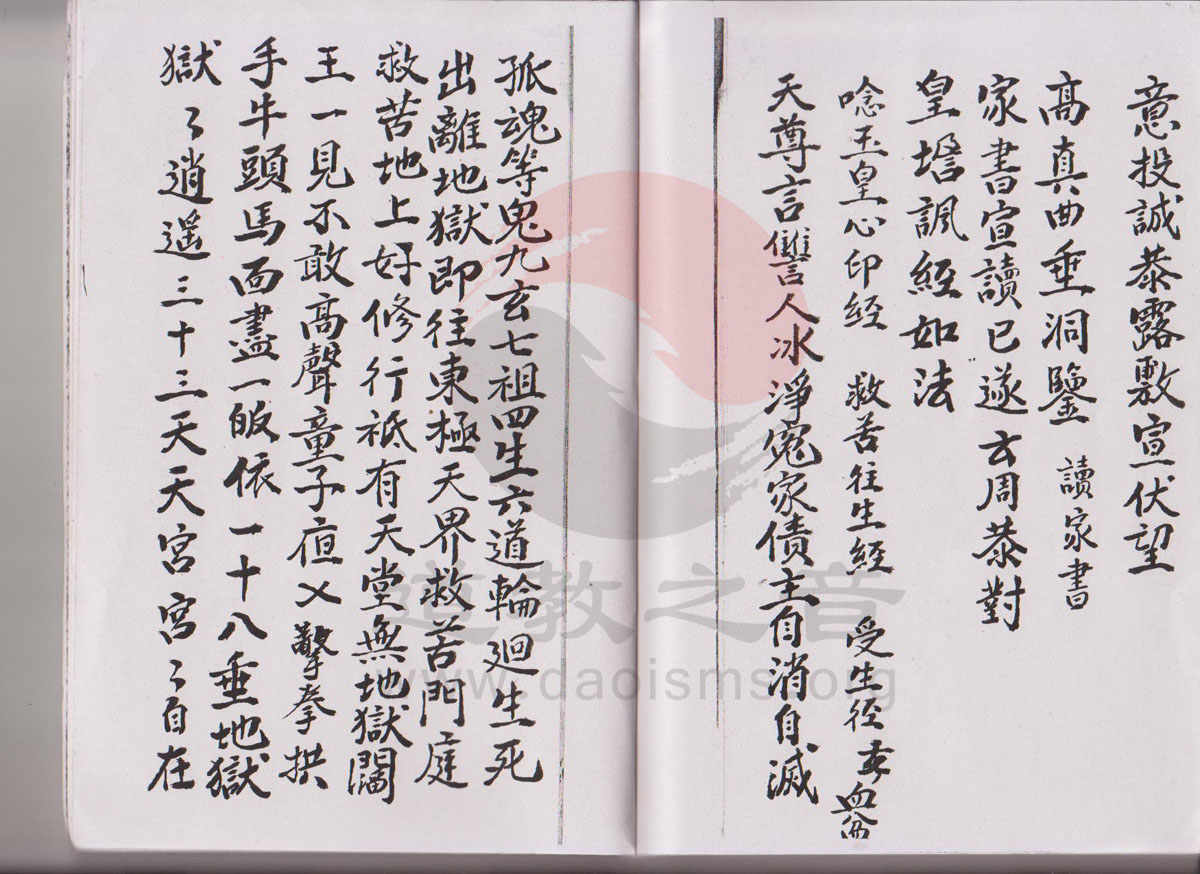 意投誠恭露敷宣伏望
高真曲垂洞鑒　讀家書
家書宣讀已遂云周恭對
皇壇諷經如法
唸玉皇心印經　救苦往生經　受生径　血盆
天尊言讐人冰淨寃家債主自消自滅
孤魂等鬼九玄七祖四生六道輪廻生死
出離地獄即往東極天界救苦門庭
救苦地上好修行衹有天堂無地獄閻
王一見不敢高聲童子㐫乂擎拳拱
手牛頭馬面盡一皈依一十八垂地獄
獄々逍遥三十三天天宮宮々自在
道教之音
www.daoisms.org